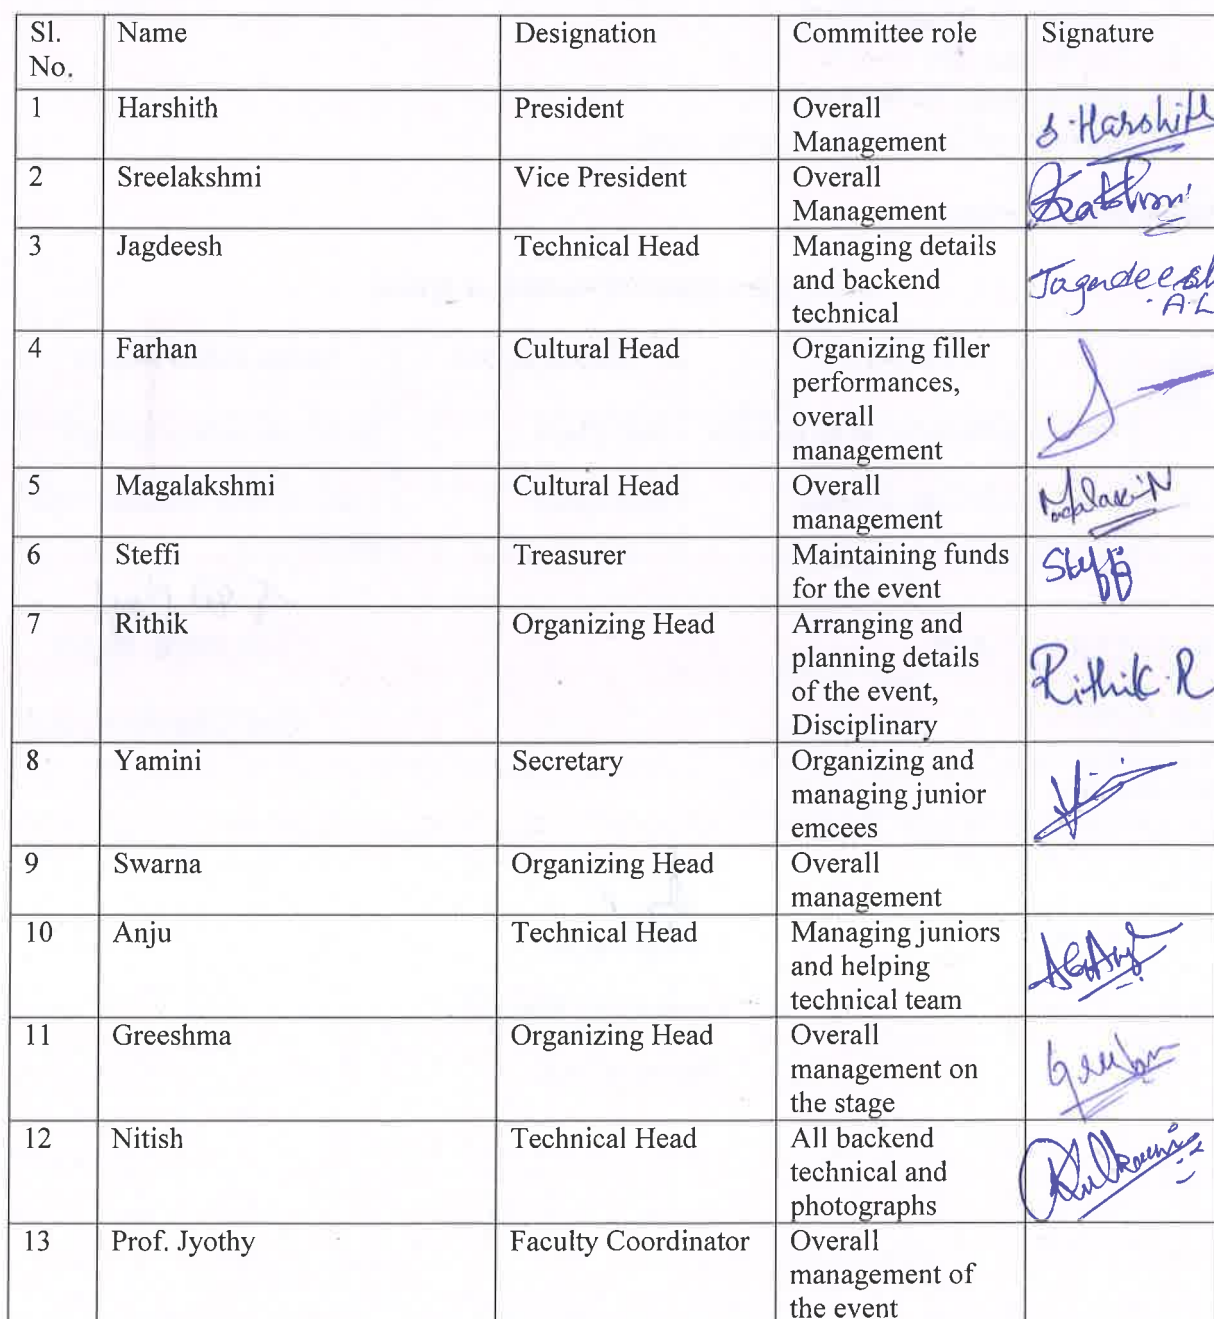 Sl. No. Name Designation Committee role Signature
1 Harshith President Overall Management S. Harshith
2 Sreelakshmi Vice President Overall Management
3 Jagdeesh Technical Head Managing details and backend technical Jagadeesh A.L
4 Farhan Cultural Head Organizing filler performances, overall management
5 Magalakshmi Cultural Head Overall management
6 Steffi Treasurer Maintaining funds for the event Steffi
7 Rithik Organizing Head Arranging and planning details of the event, Disciplinary Rithik. R
8 Yamini Secretary Organizing and managing junior emcees
9 Swarna Organizing Head Overall management
10 Anju Technical Head Managing juniors and helping technical team
11 Greeshma Organizing Head Overall management on the stage
12 Nitish Technical Head All backend technical and photographs
13 Prof. Jyothy Faculty Coordinator Overall management of the event